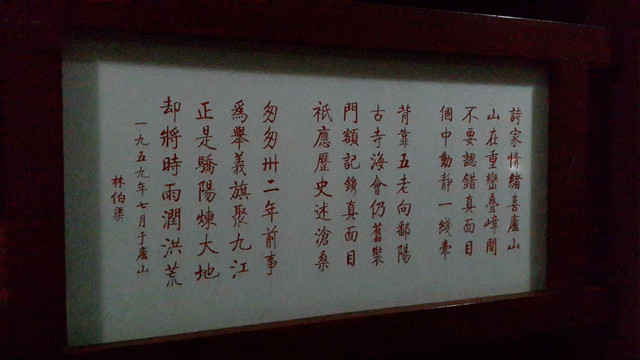 詩家情緒喜廬山
山在重巒疊嶂間
不要認錯真面目
個中動靜一綫牽
背靠五老向鄱陽
古寺海會仍舊裝
門額記鐫真面目
祇應歷史述滄桑
匆匆卅二年前事
爲舉義旗聚九江
正是驕陽煉大地
却將時雨潤洪荒
一九五九年七月于廬山
林伯渠